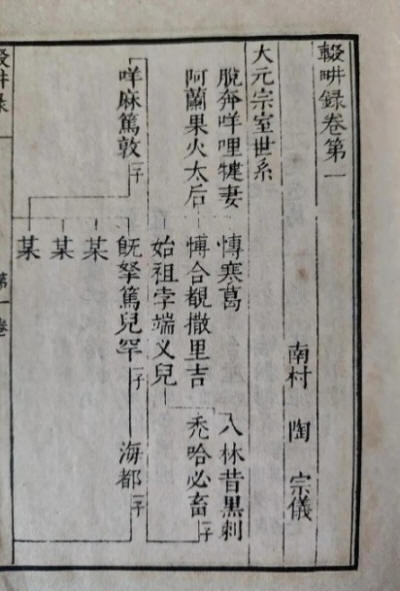 輟畊録卷第一
南村 陶 宗儀
大元宗室世系
脫奔咩哩犍妻
阿蘭果火太后
博寒葛
博合覩撒里吉
始祖孛端义兒
八林昔黒剌
禿哈必畜 一子
咩麻篤敦 一子
旣拏篤兒罕 一子
海都 一子
某
某
某
第一卷